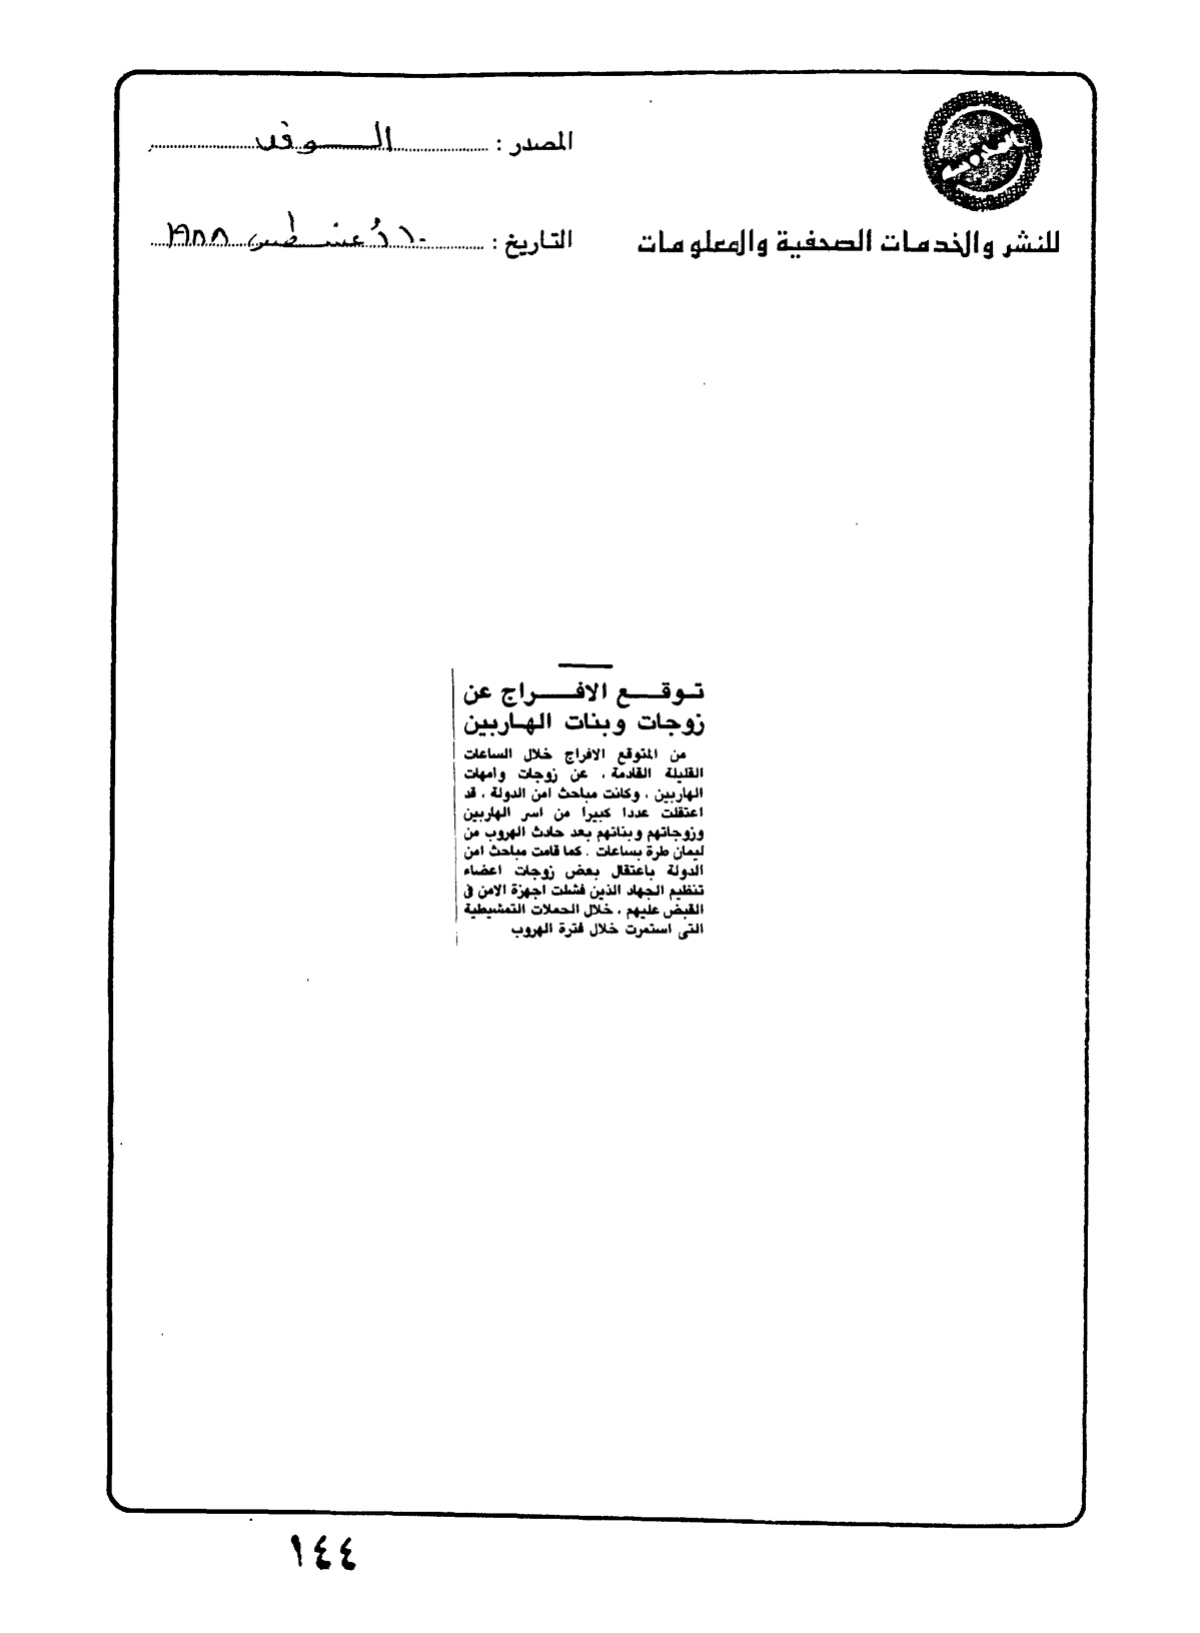 المصدر : الوفد
للنشر والخدمات الصحفية والمعلومات
التاريخ : ١٠ أغسطس ١٩٨٨
توقع الافراج عن
زوجات وبنات الهاربين
من المتوقع الافراج خلال الساعات
القليلة القادمة ، عن زوجات وامهات
الهاربين ، وكانت مباحث امن الدولة ، قد
اعتقلت عددا كبيرا من اسر الهاربين
وزوجاتهم وبناتهم بعد حادث الهروب من
ليمان طرة بساعات . كما قامت مباحث امن
الدولة باعتقال بعض زوجات اعضاء
تنظيم الجهاد الذين فشلت اجهزة الامن فى
القبض عليهم ، خلال الحملات التمشيطية
التى استمرت خلال فترة الهروب
١٤٤